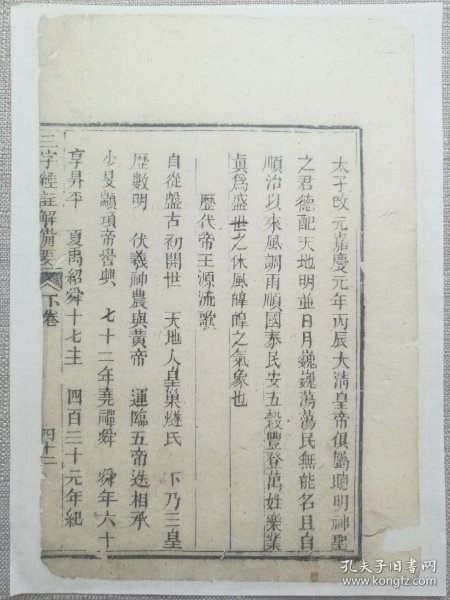 太子改元嘉慶元年丙辰大清皇帝俱屬聰明神聖
之君德配天地明並日月巍巍蕩蕩民無能名且自
順治以來風調雨順國泰民安五穀豐登萬姓樂業
眞爲盛世之休風皞皞之氣象也
歷代帝王源流歌
自從盤古初開世 天地人皇巢燧氏 下乃三皇
歷數明 伏羲神農與黃帝 運臨五帝迭相承
少昊顓頊帝嚳興 七十二年堯禪舜 舜年六十
享昇平 夏禹紹舜十七主 四百三十元年紀
三字經註解備要 下卷 四十二
孔夫子旧书网
www.kongfz.com